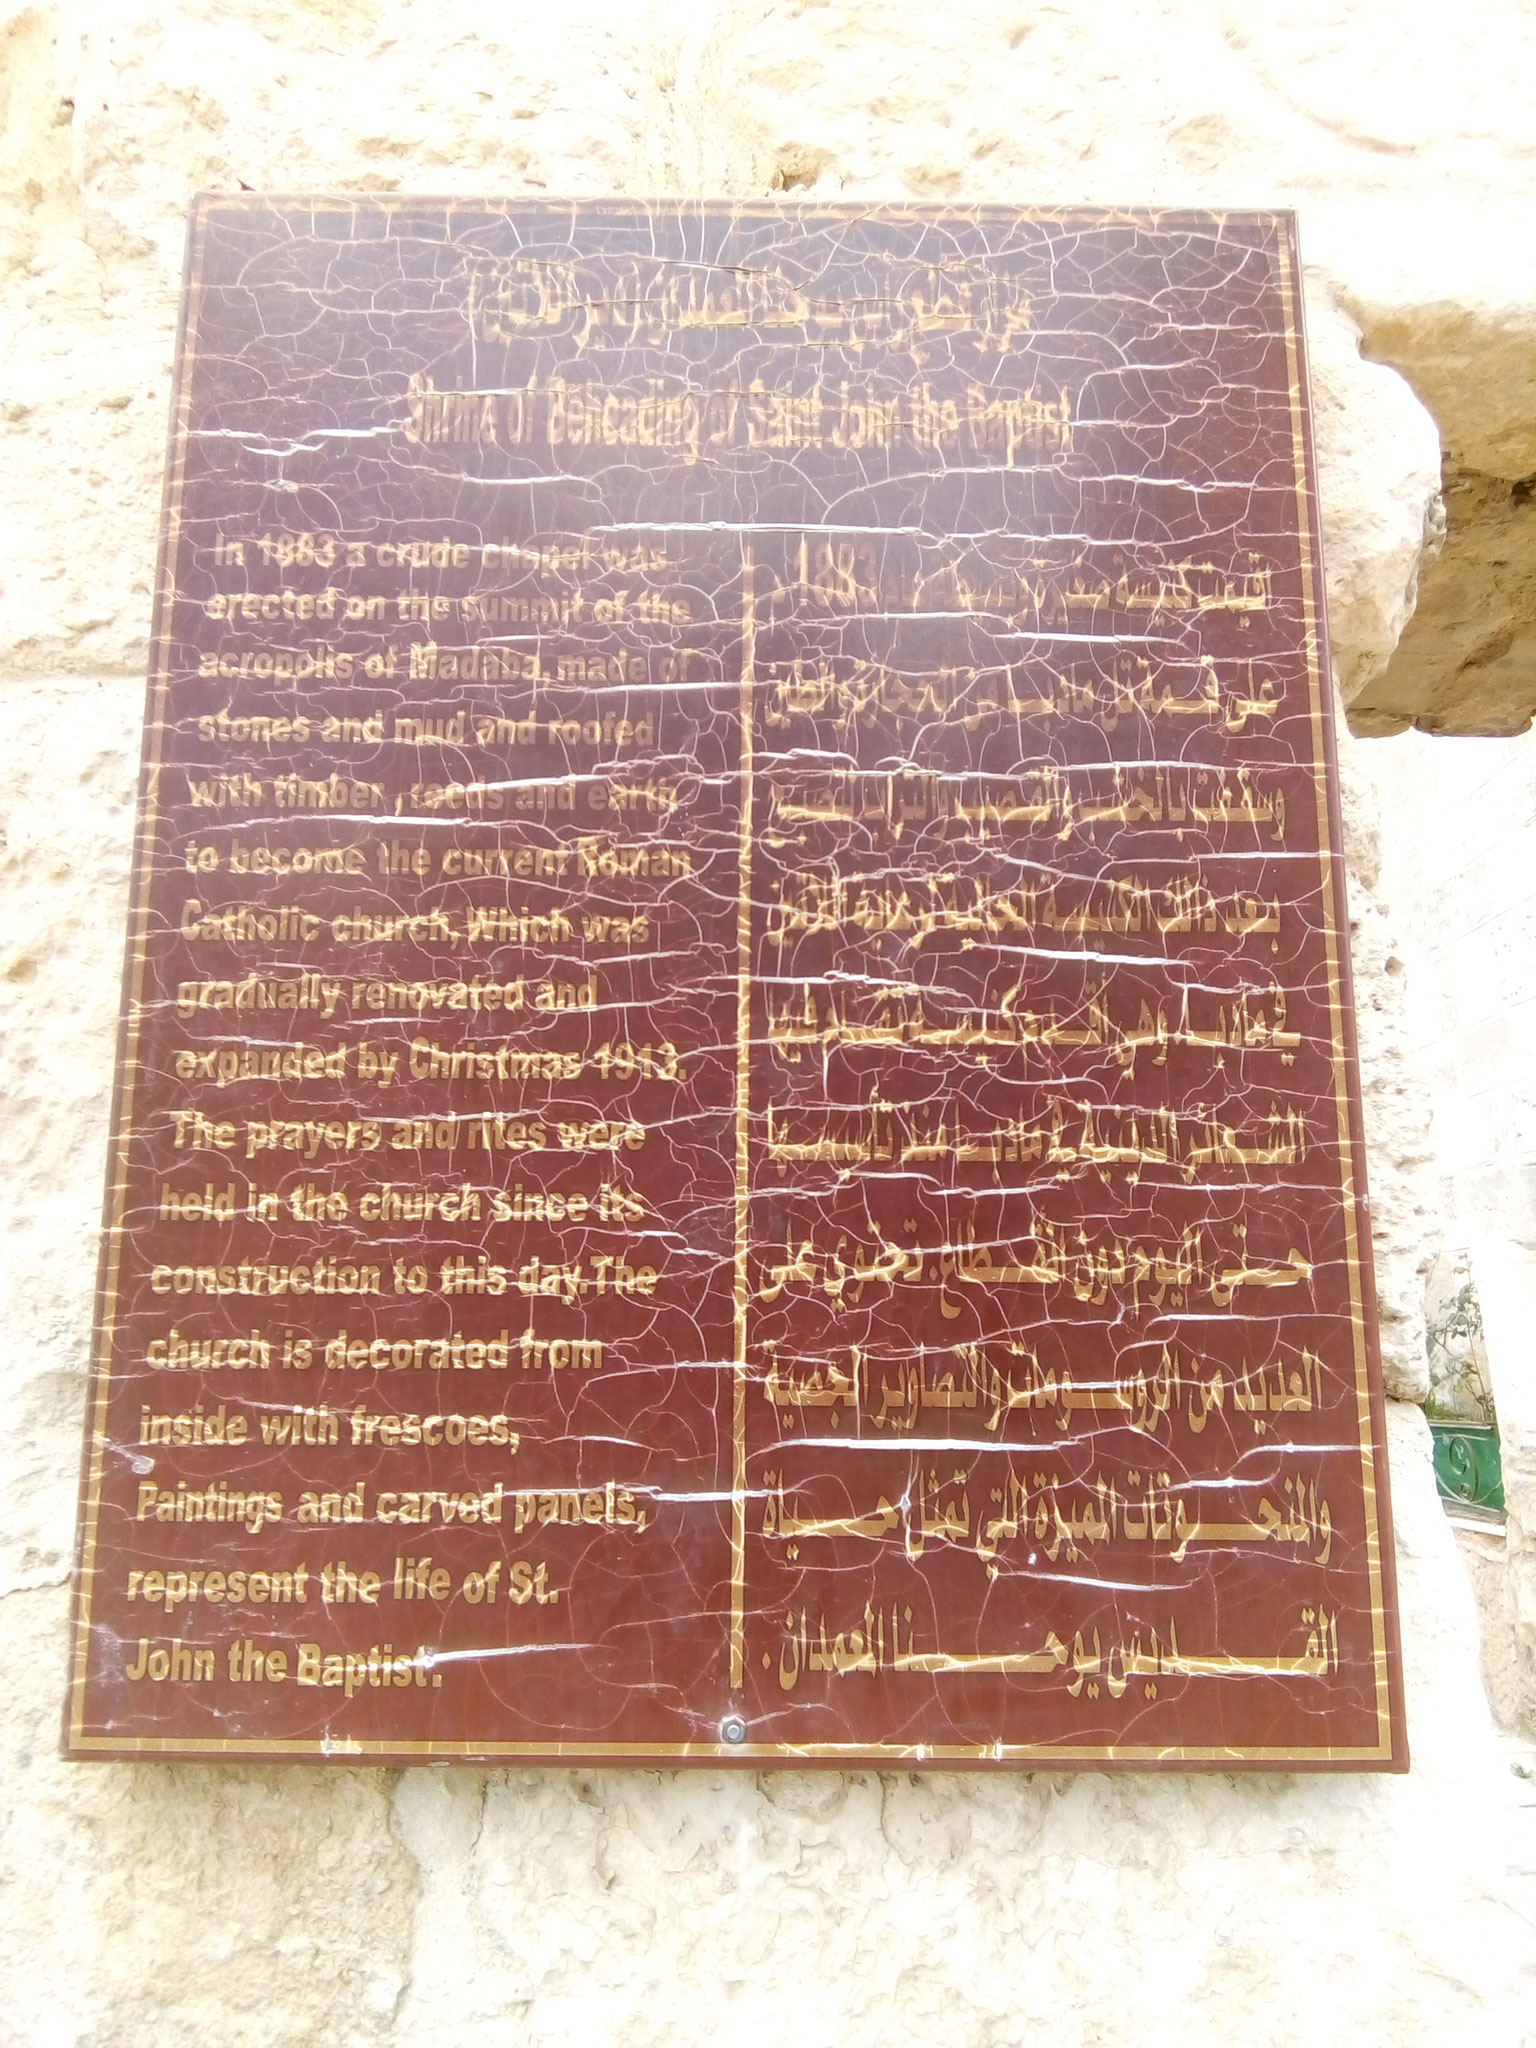 Shrine of Beheading of Saint John the Baptist
In 1883 a crude chapel was
erected on the summit of the
acropolis of Madaba, made of
stones and mud and roofed
with timber, reeds and earth
to become the current Roman
Catholic church, Which was
gradually renovated and
expanded by Christmas 1913.
The prayers and rites were
held in the church since its
construction to this day.The
church is decorated from
inside with frescoes,
Paintings and carved panels,
represent the life of St.
John the Baptist.
أقيمت كنيسة صغيرة 1883 م
على قمة تل مادبا من الحجارة والطين
وسقفت بالخشب والقصب والتراب لتصبح
بعد ذلك الكنيسة الحالية لرعية اللاتين
في مادبا وهي أقدم كنيسة تقام فيها
الشعائر الدينية في مادبا منذ تأسيسها
حتى اليوم دون انقطاع. تحتوي على
العديد من الرسومات والتصاوير الجصية
والمنحوتات المميزة التي تمثل حياة
القديس يوحنا المعمدان.